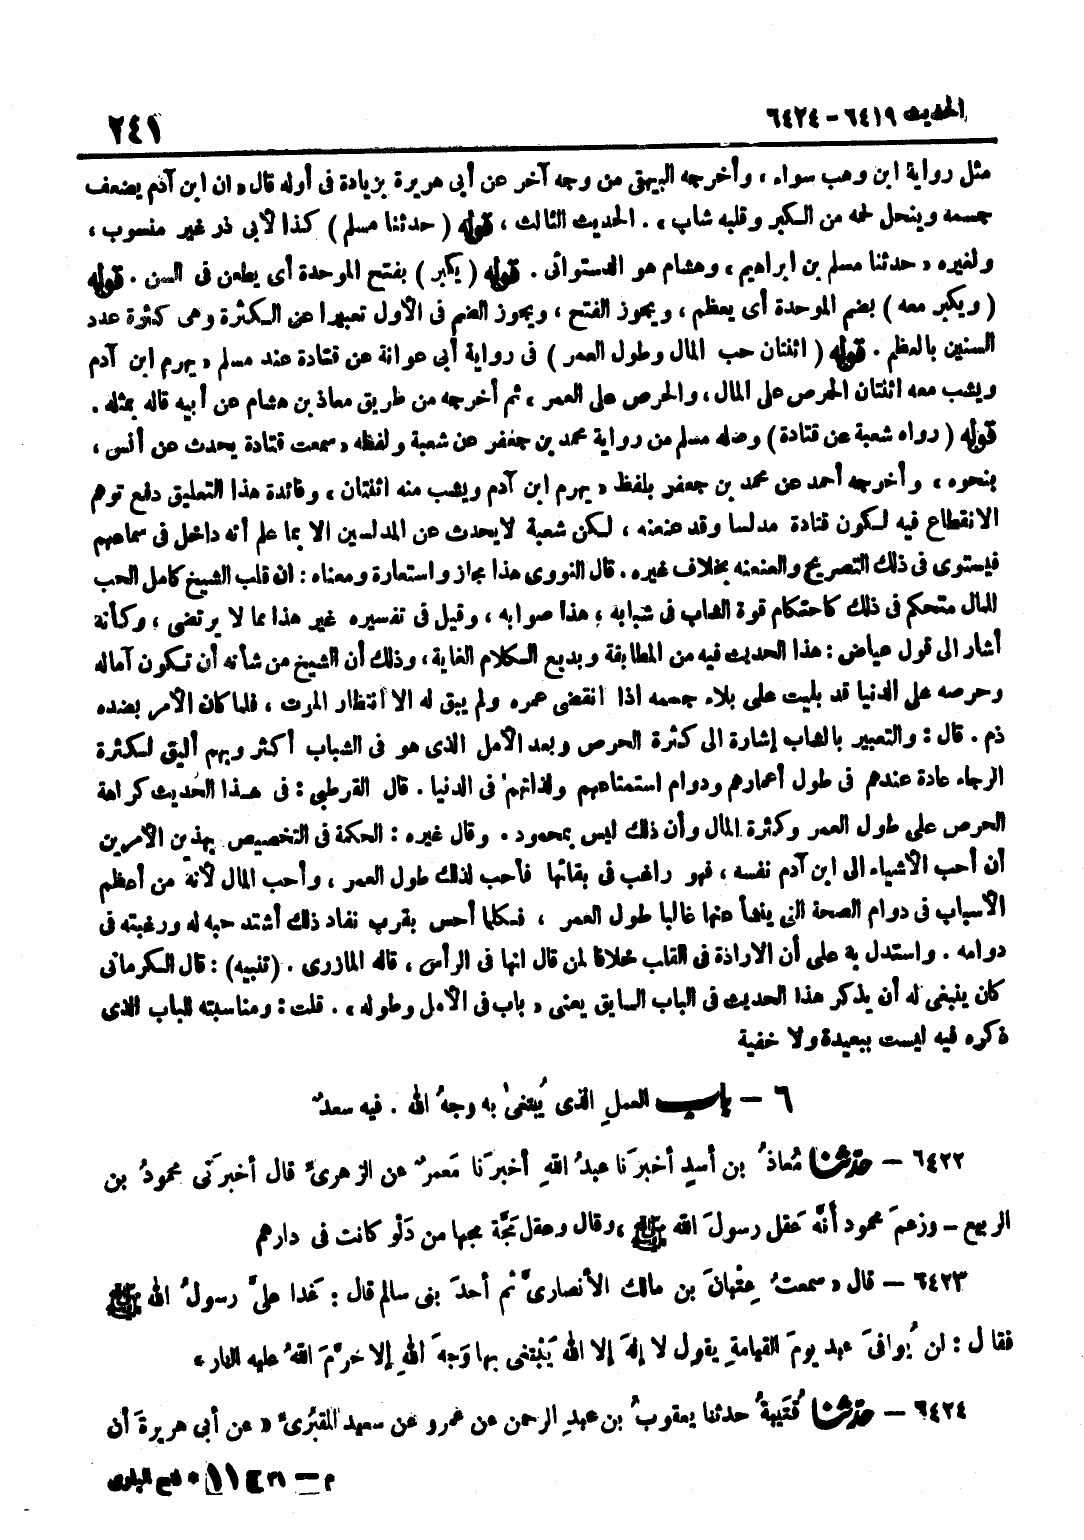 الحديث ٦٤١٩ - ٦٤٢٤
٢٤١
مثل رواية ابن وهب سواء ، وأخرجه البيهقى من وجه آخر عن أبى هريرة بزيادة فى أوله قال « ان ابن آدم يضعف
جسمه وينحل لحمه من الكبر وقلبه شاب » . الحديث الثالث ، قوله ( حدثنا مسلم ) كذا لأبى ذر غير منسوب ،
ولغيره « حدثنا مسلم بن ابراهيم ، وهشام هو الدستوائى . قوله ( يكبر ) بفتح الموحدة أى يطعن فى السن . قوله
( ويكبر معه ) بضم الموحدة أى يعظم ، ويجوز الفتح ، ويجوز الضم فى الأول تعبيرا عن الكثرة وهى كثرة عدد
السنين بالعظم . قوله ( اثنتان حب المال وطول العمر ) فى رواية أبى عوانة عن قتادة عند مسلم « يهرم ابن آدم
ويشب معه اثنتان الحرص على المال ، والحرص على العمر » ثم أخرجه من طريق معاذ بن هشام عن أبيه قاله بمثله .
قوله ( رواه شعبة عن قتادة ) وصله مسلم من رواية محمد بن جعفر عن شعبة ولفظه « سمعت قتادة يحدث عن أنس ،
بنحوه ، وأخرجه أحمد عن محمد بن جعفر بلفظ « يهرم ابن آدم ويشب منه اثنتان ، وفائدة هذا التعليق دفع توهم
الانقطاع فيه لكون قتادة مدلسا وقد عنعنه ، لكن شعبة لا يحدث عن المدلسين الا بما علم أنه داخل فى سماعهم
فيستوى فى ذلك التصريح والعنعنه بخلاف غيره . قال النووى هذا مجاز واستعارة ومعناه : ان قلب الشيخ كامل الحب
للمال متحكم فى ذلك كاحتكام قوة الشاب فى شبابه ، هذا صوابه ، وقيل فى تفسيره غير هذا مما لا يرتضى ، وكأنه
أشار الى قول عياض : هذا الحديث فيه من المطابقة وبديع الكلام الغاية ، وذلك أن الشيخ من شأنه أن تكون آماله
وحرصه على الدنيا قد بليت على بلاء جسمه اذا انقضى عمره ولم يبق له الا انتظار الموت ، فلما كان الأمر بضده
ذم . قال : والتعبير بالشاب إشارة الى كثرة الحرص وبعد الأمل الذى هو فى الشباب أكثر وبهم أليق لكثرة
الرجاء عادة عندهم فى طول أعمارهم ودوام استمتاعهم ولذاتهم فى الدنيا . قال القرطبى : فى هذا الحديث كراهة
الحرص على طول العمر وكثرة المال وأن ذلك ليس بمحمود . وقال غيره : الحكمة فى التخصيص بهذين الأمرين
أن أحب الأشياء الى ابن آدم نفسه ، فهو راغب فى بقائها فأحب لذلك طول العمر ، وأحب المال لأنه من أعظم
الأسباب فى دوام الصحة التى ينشأ عنها غالبا طول العمر ، فكلما أحس بقرب نفاد ذلك أشتد حبه له ورغبته فى
دوامه . واستدل به على أن الارادة فى القلب خلافا لمن قال انها فى الرأس ، قاله المازرى . (تنبيه) : قال الكرمانى
كان ينبغى له أن يذكر هذا الحديث فى الباب السابق يعنى « باب فى الأمل وطوله » . قلت : ومناسبته للباب الذى
ذكره فيه ليست ببعيدة ولا خفية
٦ - باب العملِ الذى يُبتغىٰ به وجهُ الله . فيه سعدٌ
٦٤٢٢ - حدثنا مُعاذُ بن أسدٍ أخبرَنا عبدُ اللهِ أخبرَنا مَعمرٌ عن الزهرىِّ قال أخبرَنى محمودُ بن
الربيع - وزعمَ محمود أنَّه عَقل رسولَ الله ﷺ ، وقال وعقل مَجَّة مجها من دَلْو كانت فى دارهم
٦٤٢٣ - قال « سمعتُ عِتْبانَ بن مالك الأنصارىَّ ثم أحدَ بنى سالم قال : غَدا علىَّ رسولُ الله ﷺ
فقال : لن يُوافىَ عبد يومَ القيامةِ يقول لا إلهَ إلا الله يَبْتغى بها وَجهَ اللهِ إلا حرَّمَ اللهُ عليه النار »
٦٤٢٤ - حدثنا قُتَيبةُ حدثنا يعقوبُ بن عبدِ الرحمن عن عمرو عن سعيد المقبُرىِّ « عن أبى هريرةَ أن
م - ٣١ ج ١١ * فتح البارى